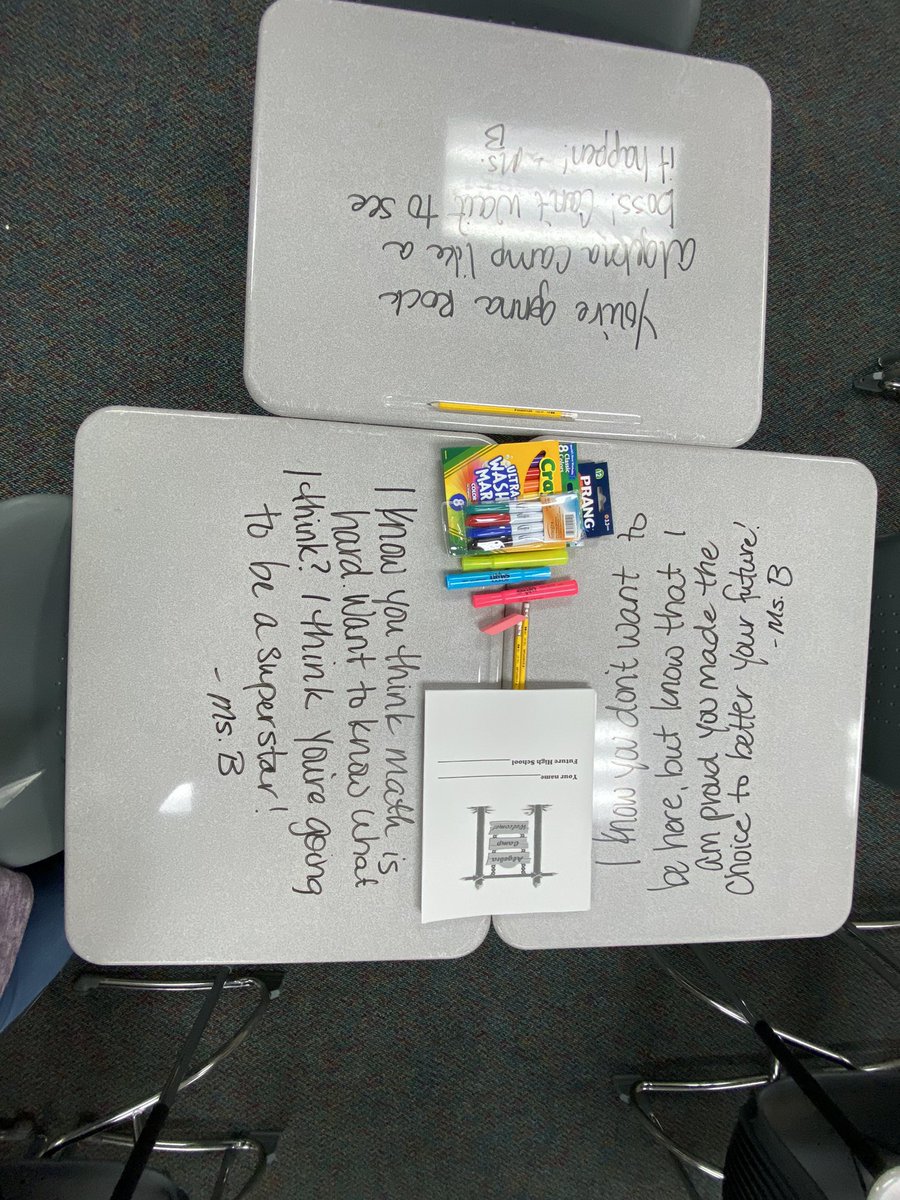 You're gonna Rock
Algebra Camp like a
boss! Can't wait to see
it happen! - Ms.
B
I know you think math is
hard. Want to know what
I think? I think you're going
to be a superstar!
- Ms. B
I know you don't want to
be here, but know that I
am proud you made the
choice to better your future!
- Ms. B
8
ULTRA
WASH
MAR
COLOR
Cra
8 Classic
Colors
PRANG
Algebra
Camp
Welcome!
Your name
Future High School